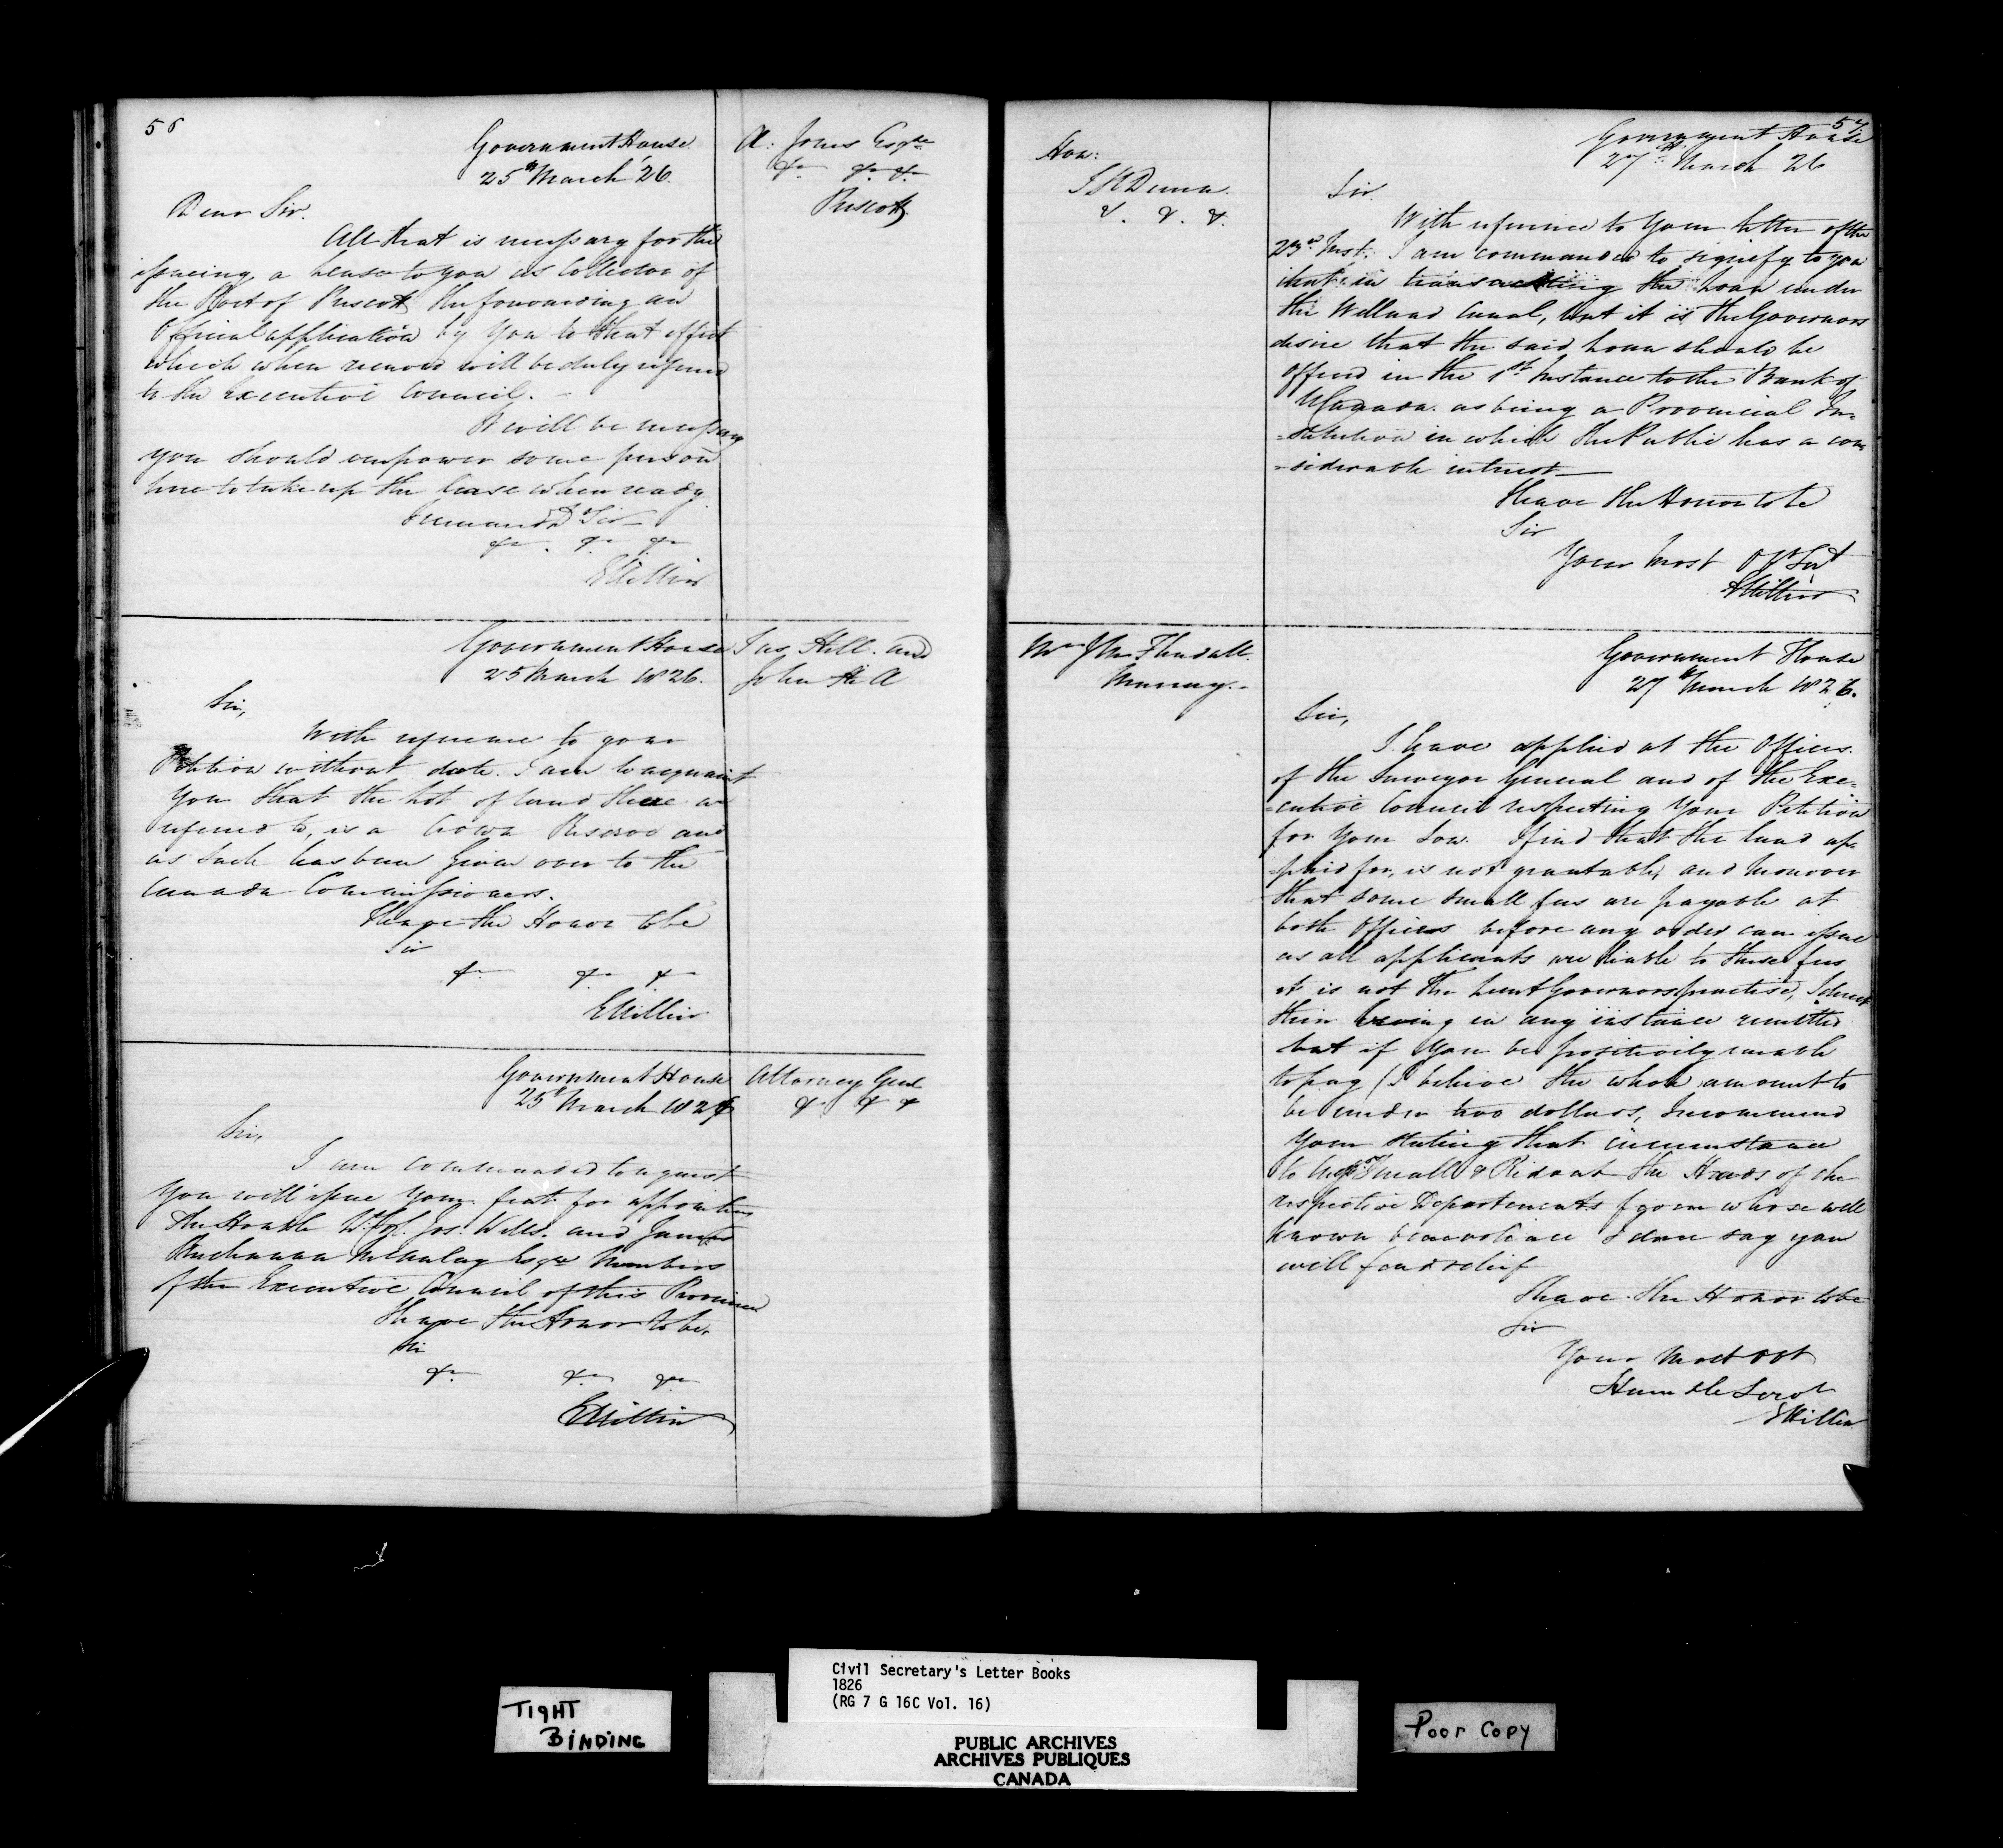 56
Government House
25th March '26.
A: Jones Esqre
&c &c &c
Prescott
Dear Sir.
All that is necessary for the
issueing a lease to you as Collector of
the Port of Prescott the forwarding an
Official application by you to that effect
which when received will be duly referred
to the executive Council. -
It will be necessary
you should empower some person
here to take up the lease when ready.
remain Dr Sir
&c . &c &c
EHillier
Government House
25 March 1826.
Jas Hill. and
John
Sir,
With reference to your
Petition without date. I am to acquaint
you that the Lot of land there in
referred to, is a Crown Reserve and
as such has been given over to the
Canada Commissioners.
I have the Honor to be
Sir
&c &c &c
EHillier
Government House
25th March 1826
Attorney Genl
& & &
Sir,
I am commanded to request
you will issue your fiat for appointing
the Honble Jos. Wells. and James
Buchanan McAulay Esqre Members
of the Executive Council of this Province
I have the Honor to be,
Sir
&c &c &c
EHillier
57
Hon:
J H Dunn.
&. &. &.
Government House
27th March 26
Sir.
With reference to your letter of the
23rd Inst. I am commanded to signify to you
that in transacting the loan under
the Welland Canal, that it is the Governors
desire that the said loan should be
offered in the 1st Instance to the Bank of
U Canada. as being a Provincial In-
=stitution in which the Public has a con-
=siderable interest
I have the Honor to be
Sir
Your Most Ob Sert
EHillier
Mr Jhn
Murray. -
Government House
27th March 1826.
Sir,
I have applied at the Offices.
of the Surveyor General and of the Exe-
=cutive Council respecting your Petition
for your Son. I find that the land ap-
=plied for, is not grantable, and moreover
that some small fees are payable at
both Offices before any order can issue
as all applicants are liable to these fees
it is not the Lieut Governors practise, I direct
their being in any instance remitted
but if you be positively unable
to pay (I believe the whole amount to
be under two dollars, I recommend
your stating that circumstance
to Messrs Small & Ridout the Heads of the
respective Departments from whose well
known benevolence I dare say you
will find relief
I have the Honor to be
Sir
Your Most Obt
Humble Servt
EHillier
TIGHT
BINDING
Civil Secretary's Letter Books
1826
(RG 7 G 16C Vol. 16)
PUBLIC ARCHIVES
ARCHIVES PUBLIQUES
CANADA
Poor Copy